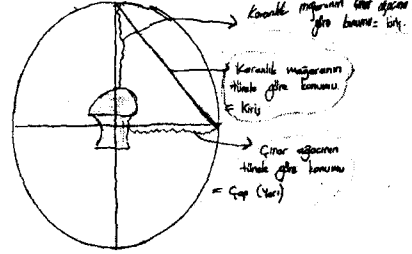 Karanlık mağaranın çınar ağacına
göre konumu = kiriş
Karanlık mağaranın
tünele göre konumu
= Kiriş
Çınar ağacının
tünele göre konumu
= Çap (Yarı)